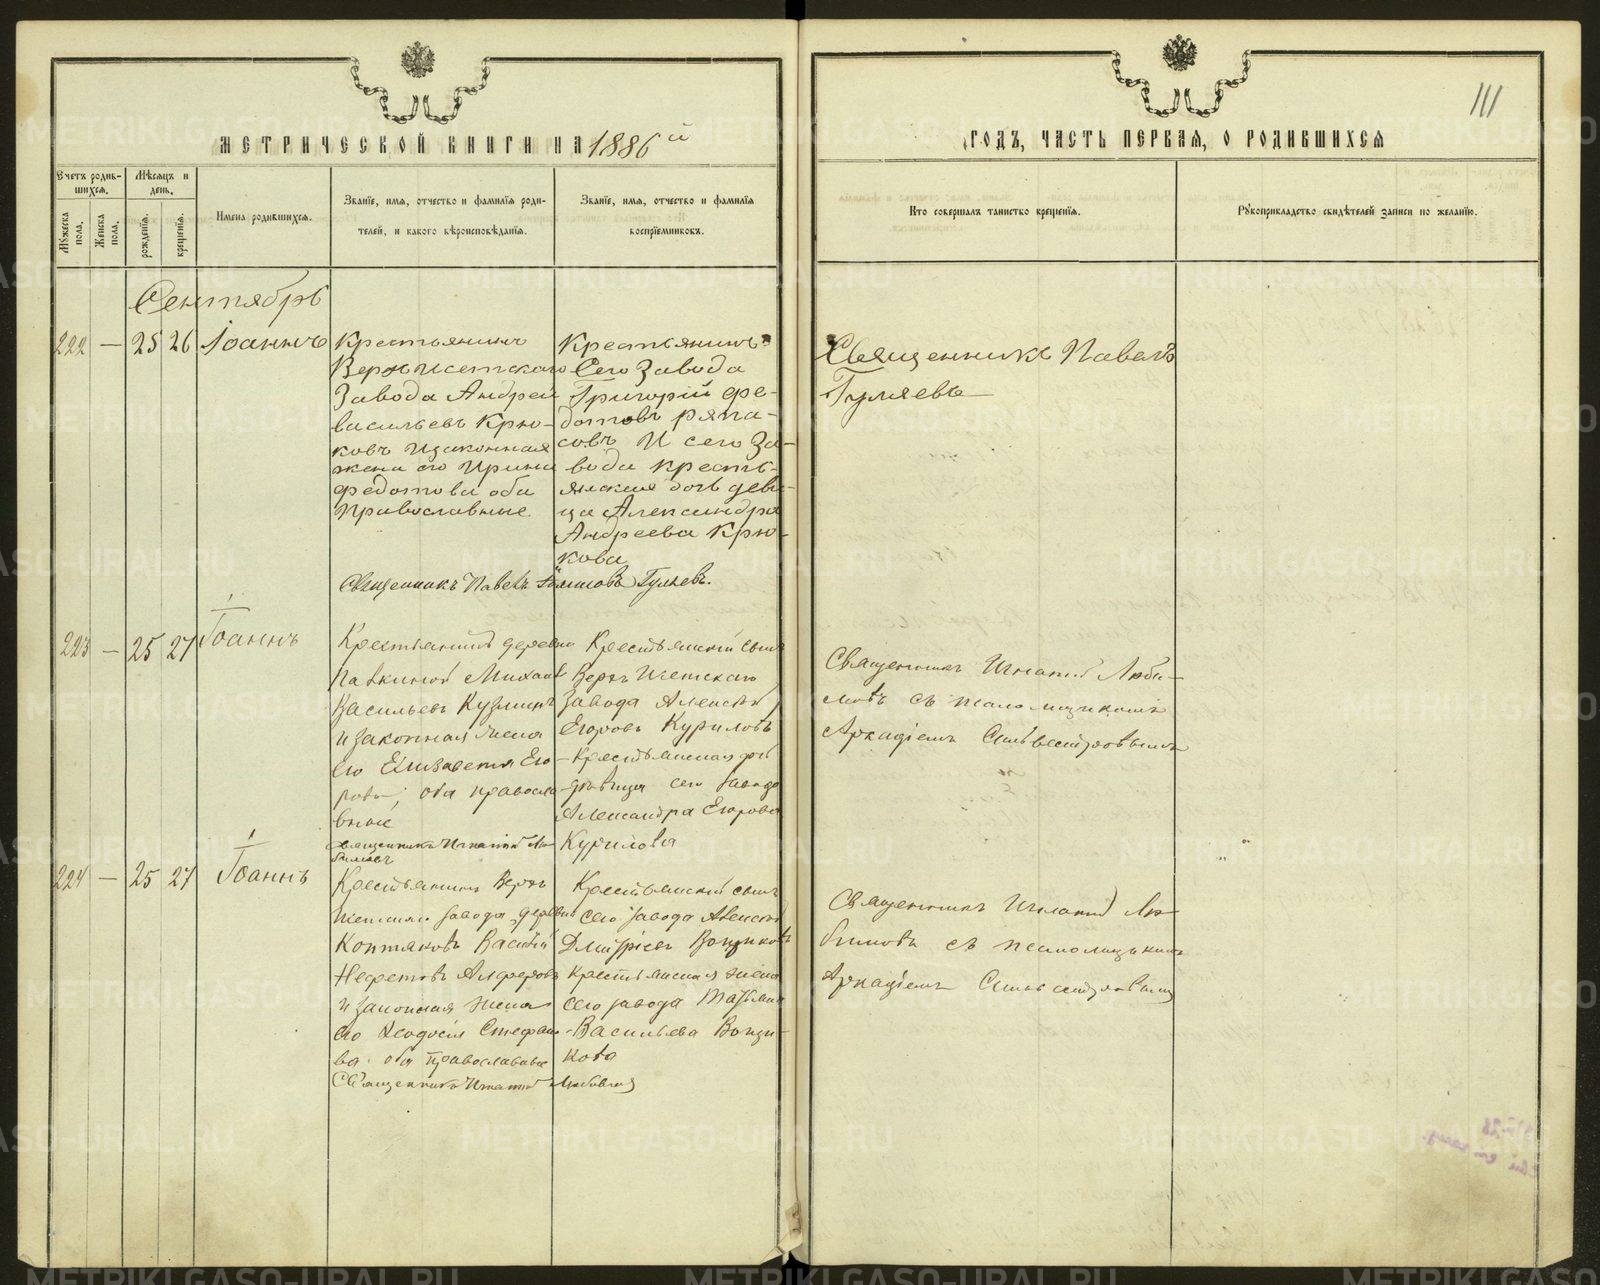 111
МЕТРИЧЕСКОЙ КНИГИ НА 1886й
ГОДЪ, ЧАСТЬ ПЕРВАЯ, О РОДИВШИХСЯ
Счетъ родив-
шихся.
Мѣсяцъ и
день.
Мужеска пола.
Женска пола.
рожденія.
крещенія.
Имена родившихся.
Званіе, имя, отчество и фамилія роди-
телей, и какого вѣроисповѣданія.
Званіе, имя, отчество и фамилія
воспріемниковъ.
Кто совершалъ таинство крещенія.
Рукоприкладство свидѣтелей записи по желанію.
Сентябрь
222 — 25 26 Іоаннъ
Крестьянинъ
Верхъ Исетскаго
Завода Андрей
Васильевъ Крю-
ковъ и законная
жена его Ирина
Федотова оба
православные
Крестьянинъ
Сего Завода
Григорій Фе-
дотовъ Ряпа-
совъ И сего За-
вода кресть-
янская дочь деви-
ца Александра
Андреева Крю-
кова
Священникъ Павелъ Гуляевъ.
Священникъ Павелъ
Гуляевъ
223 — 25 27 Іоаннъ
Крестьянинъ деревни
Палкиной Михаил
Васильевъ Кузминъ
и законная жена
его Елизавета Его-
рова, оба правосла-
вные
Священникъ Игнатій Лю-
бимовъ
Крестьянскій сынъ
Верхъ Исетскаго
Завода Алексѣй
Егоровъ Куриловъ
Крестьянская дочь
дѣвица сего завода
Александра Егорова
Курилова
Священникъ Игнатій Люби-
мовъ съ псаломщикомъ
Аркадіемъ Сильвестровымъ
224 — 25 27 Іоаннъ
Крестьянинъ Верхъ
Исетскаго завода деревни
Коптяковъ Василій
Нефетовъ Алферовъ
и законная жена
его Ѳеодосія Стефано-
ва оба православные
Священникъ Игнатій Любимовъ
Крестьянскій сынъ
сего завода Алексѣй
Дмитріевъ
Крестьянская жена
сего завода Татьяна
Васильева
Священникъ Игнатій Лю-
бимовъ съ псаломщикомъ
Аркадіемъ Сильвестровымъ
METRIKI.GASO-URAL.RU